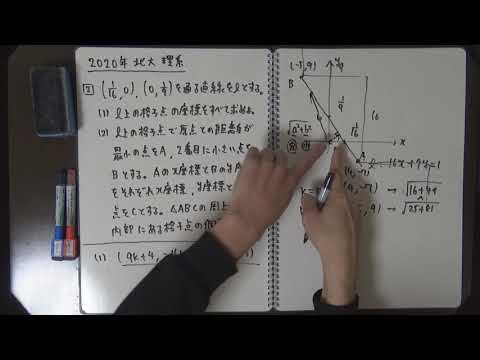 2020年 北大 理系
2 (1/16, 0), (0, 1/9)を通る直線をlとする。
(1) l上の格子点の座標をすべて求めよ。
(2) l上の格子点で原点との距離が
最小の点をA, 2番目に小さい点を
Bとする。Aのx座標とBのy座標
をそれぞれx座標, y座標と
点をCとする。△ABCの
内部にある格子点の
(1) (9k+4, -16
(-5, 9)
y
B
1/9
16
√a²+b²
1/16
x
A
l: 16x+9y=1
(4, -7)
(4, -7) → √16+49
, 9) → √25+81